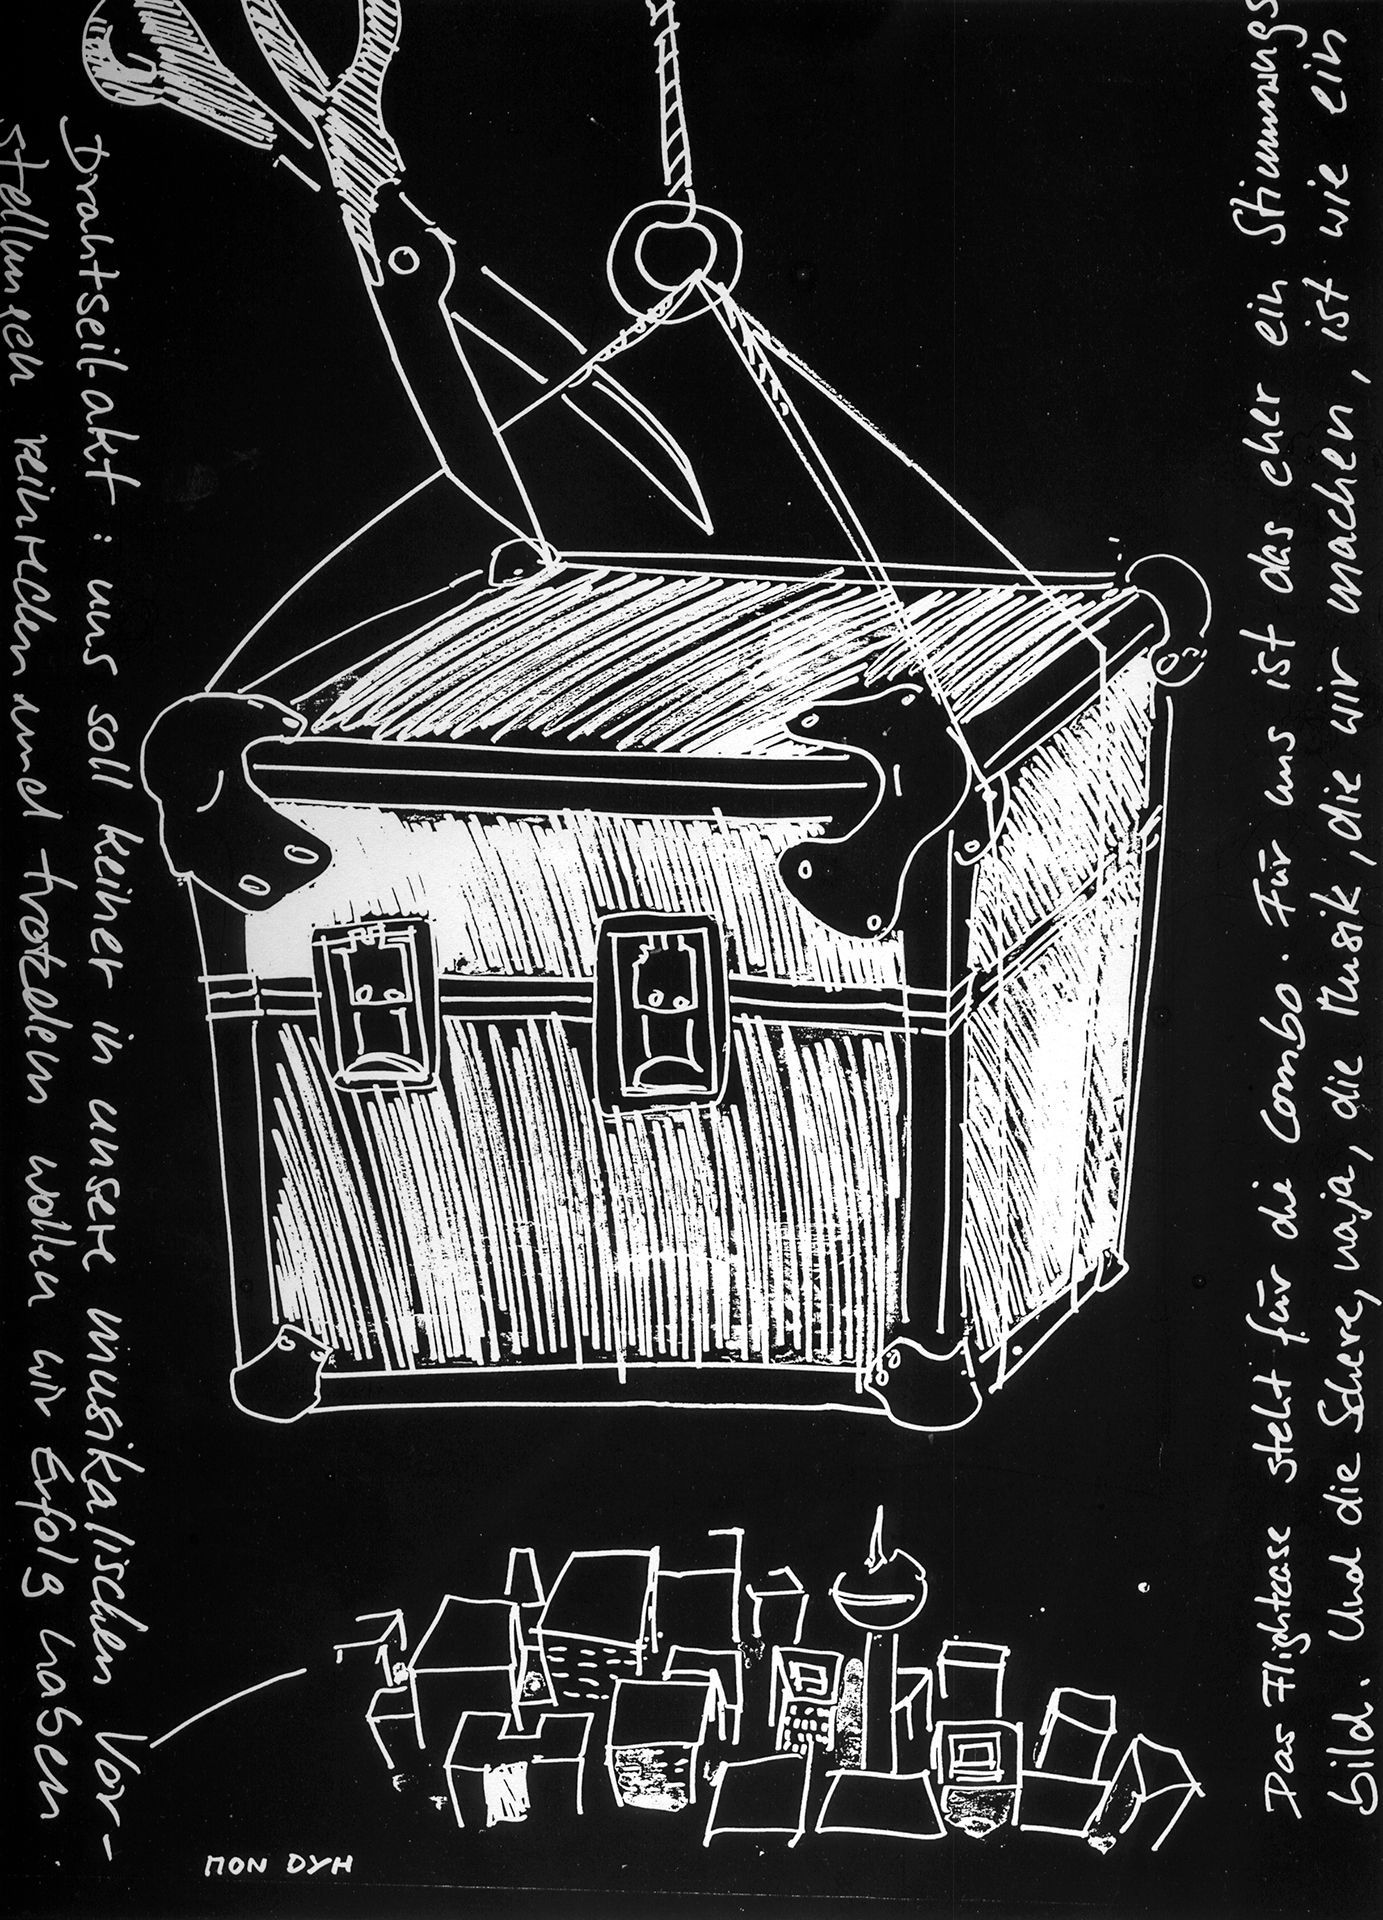 Das Flightcase steht für die Combo. Für uns ist das eher ein Stimmungs
bild. Und die Schere, naja, die Musik, die wir machen, ist wie ein
Drahtseilakt: uns soll keiner in unsere musikalischen Vor-
stellungen reinreden und trotzdem wollen wir Erfolg haben.
ПОN DYH